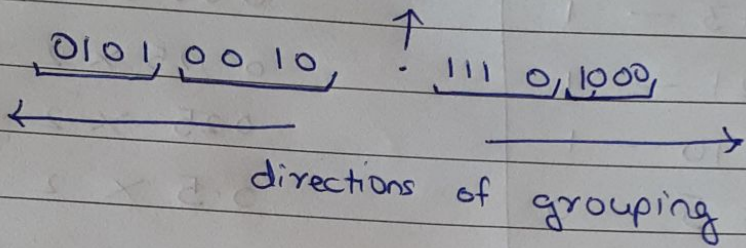 0101, 0010, . 1110, 1000,
directions of grouping